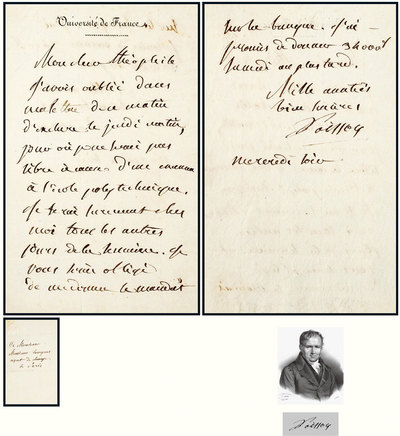 Université de France.
Mon cher théophile
J'avois oublié dans
ma lettre de ce matin
d'exclure le jeudi matin,
jour où je ne serai pas
libre à cause d'un examen
à l'école polytechnique.
Je serai surement chez
moi tous les autres
jours de la semaine. Je
vous serai obligé
de me donner le mandat
sur la banque. J'ai
promis de donner 34000f
samedi au plus tard.
Mille amitiés
bien sincères
Poisson
mercredi soir
à Monsieur
Monsieur
agent de change
à Paris
Poisson